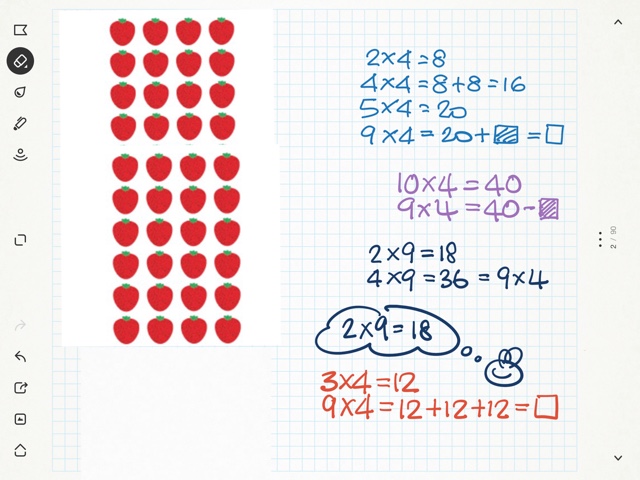 2×4=8
4×4=8+8=16
5×4=20
9×4=20+▨=□
10×4=40
9×4=40-▨
2×9=18
4×9=36=9×4
2×9=18
3×4=12
9×4=12+12+12=□
2 / 90